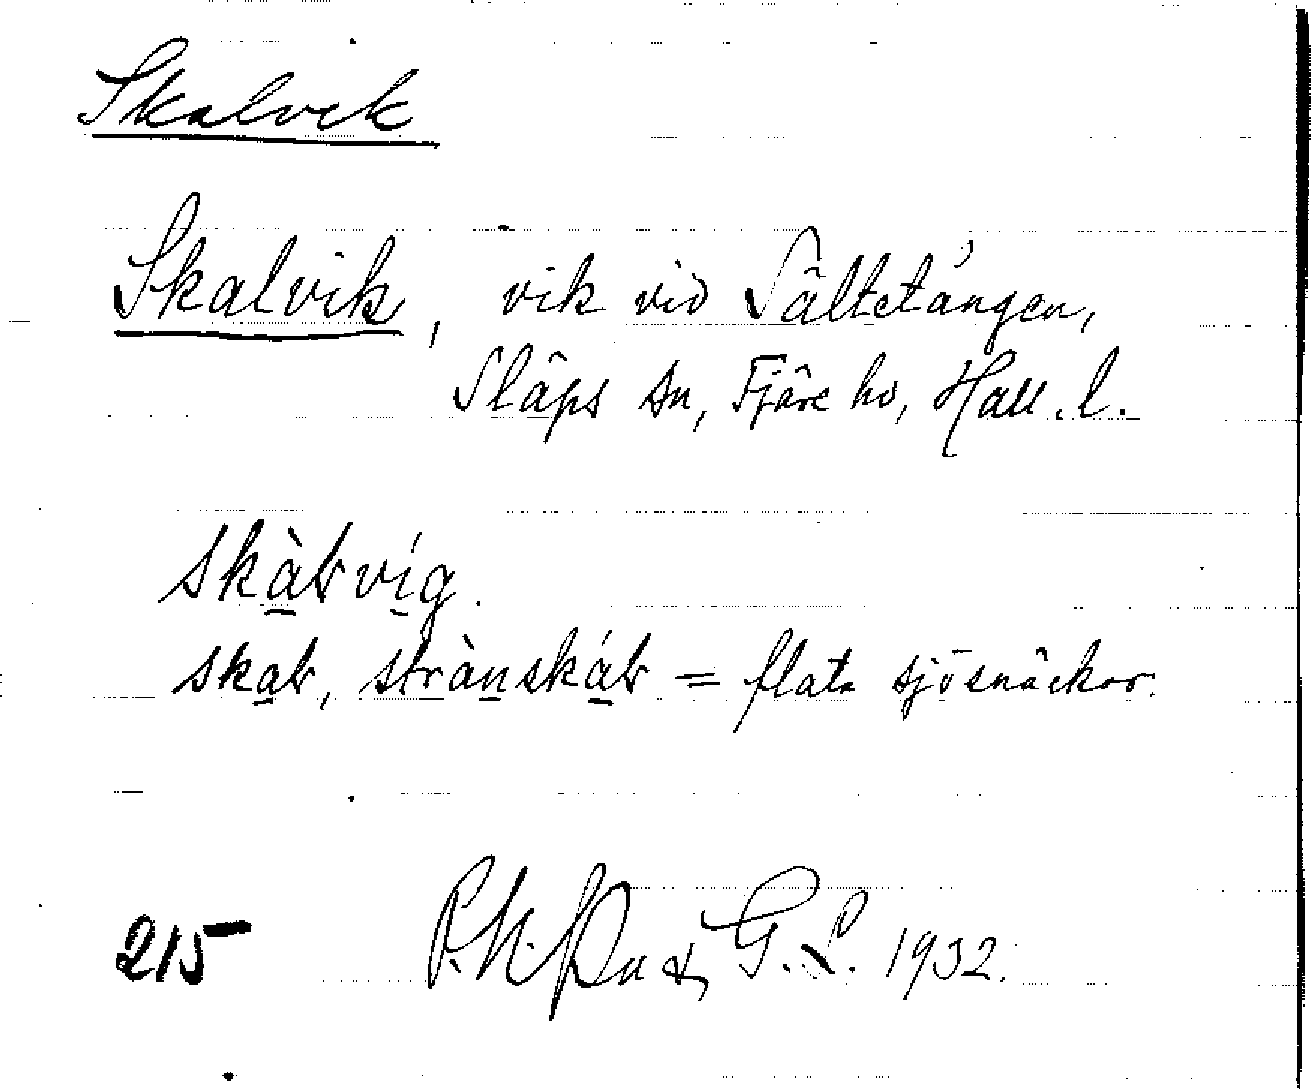 Skalvik
Skalvik, vik vid Sältetången,
Släps sn, Fjäre hd, Hall. l.
skàlvíg.
skal, strànskál = flata sjösnäckor.
215 & G. L. 1932.